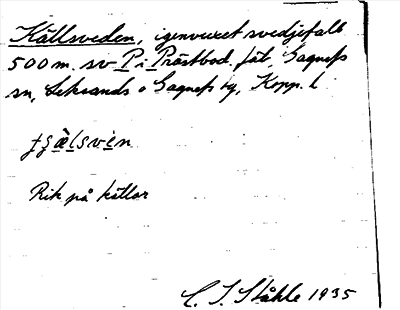 Källsveden, igenvuxet svedjefall
500 m. sv P i Prästbod. fäb, Gagnefs
sn, Leksands o Gagnefs tg, Kopp. l.
Rik på källor
C. I. Ståhle 1935